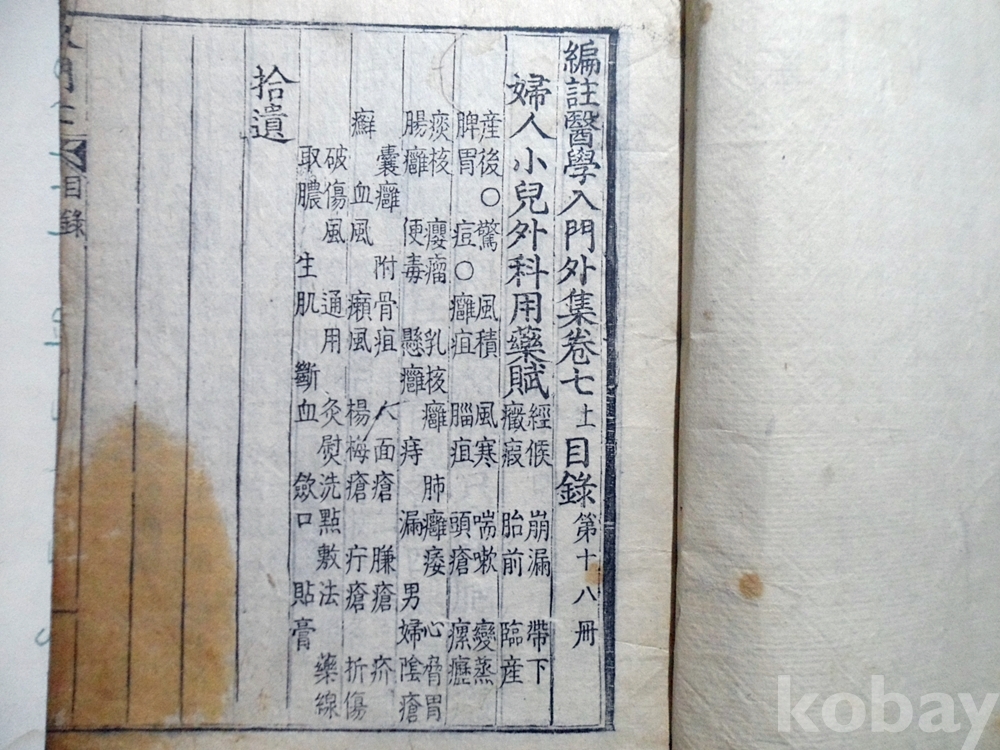 編註醫學入門外集卷七上目錄第十八冊
婦人小兒外科用藥賦
經候 崩漏 帶下
癥瘕 胎前 臨産
産後○驚 風積 風寒 喘嗽 變蒸
脾胃 痘○癰疽 腦疽 頭瘡 瘰癧
痰核 癭瘤 乳核癰 肺癰痿 心脅胃
腸癰 便毒 懸癰 痔漏 男婦陰瘡
囊癰 附骨疽 人面瘡 臁瘡 疥
癬 血風 癩風 楊梅瘡 疔瘡 折傷
破傷風 通用 灸熨洗點敷法 藥線
取膿 生肌 斷血 歛口 貼膏
拾遺
目錄
kobay